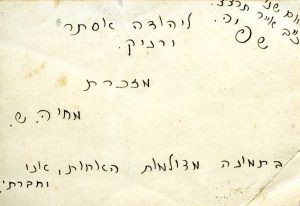 יום שני
כ"ב אייר תרצ"ב.
ליהודה אסתר
ורניק.
מזכרת
מחיה. ש.
בתמונה מצולמות האחות, אני
וחברתי.